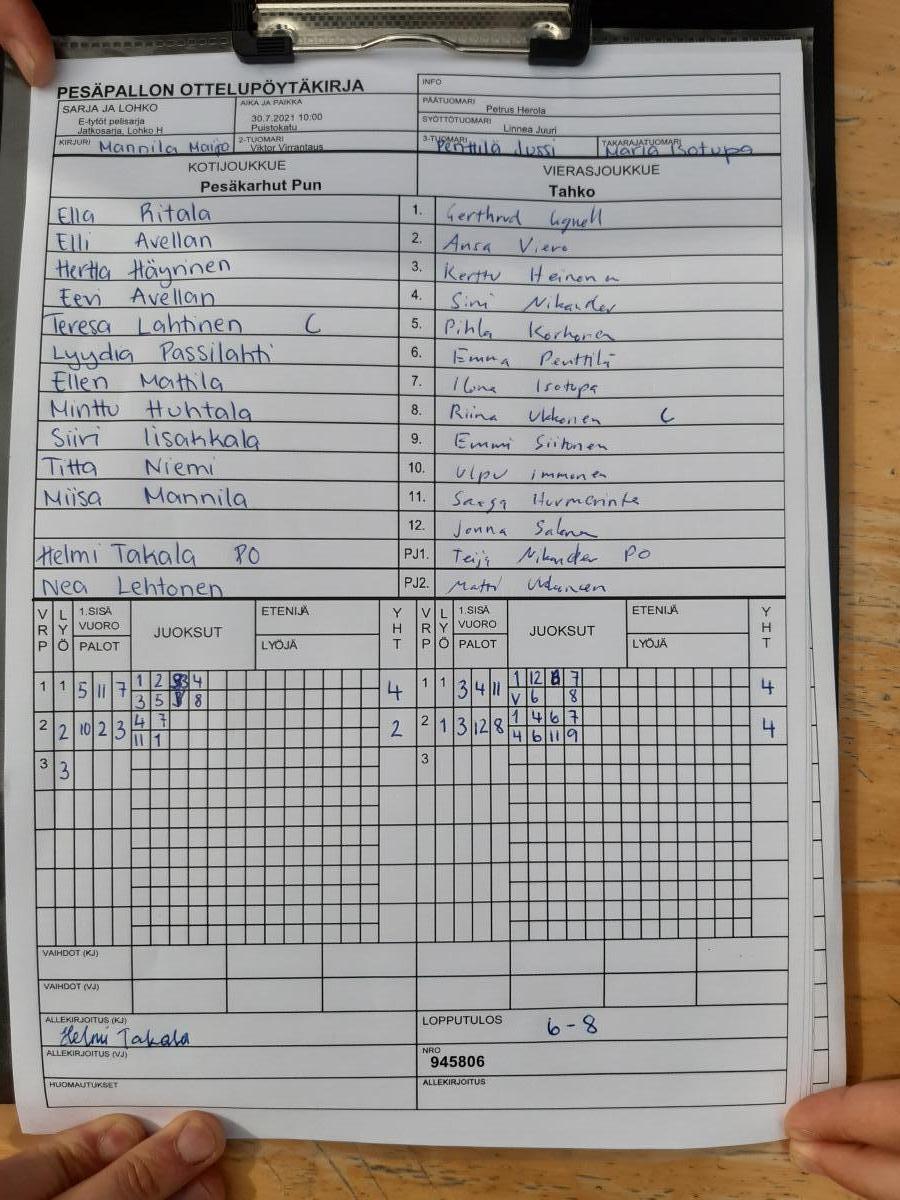 PESÄPALLON OTTELUPÖYTÄKIRJA
INFO
SARJA JA LOHKO
E-tytöt pelisarja
Jatkosarja, Lohko H
AIKA JA PAIKKA
30.7.2021 10:00
Puistokatu
PÄÄTUOMARI
Petrus Herola
SYÖTTÖTUOMARI
Linnea Juuri
KIRJURI Mannila Maijo
2-TUOMARI
Viktor Virrantaus
3-TUOMARI
Penttilä Jussi
TAKARAJATUOMARI
Maria Isotupa
KOTIJOUKKUE
Pesäkarhut Pun
VIERASJOUKKUE
Tahko
Ella Ritala 1. Gerthrud
Elli Avellan 2. Ansa
Hertta Häyrinen 3. Kerttu Heinonen
Eevi Avellan 4. Sini Nikander
Teresa Lahtinen C 5. Pihla Korhonen
Lyydia Passilahti 6. Emma Penttilä
Ellen Mattila 7. Ilona Isotupa
Minttu Huhtala 8. Riina Ukkonen C
Siiri Iisakkala 9. Emmi Siitonen
Titta Niemi 10. Ulpu immonen
Miisa Mannila 11. Saaga Hurmerinta
12. Jonna
Helmi Takala PO PJ1. Teija Nikander PO
Nea Lehtonen PJ2. Matti
VRP LYÖ 1.SISÄ VUORO PALOT JUOKSUT ETENIJÄ LYÖJÄ YHT VRP LYÖ 1.SISÄ VUORO PALOT JUOKSUT ETENIJÄ LYÖJÄ YHT
1 1 5 11 7 1 2 3 4 4 1 1 3 4 11 1 12 8 7 4
3 5 8 V 6 8
2 2 10 2 3 4 7 2 2 1 3 12 8 1 4 6 7 4
11 1 4 6 11 9
3 3 3
VAIHDOT (KJ)
VAIHDOT (VJ)
ALLEKIRJOITUS (KJ)
Helmi Takala
LOPPUTULOS 6-8
ALLEKIRJOITUS (VJ)
NRO
945806
HUOMAUTUKSET
ALLEKIRJOITUS